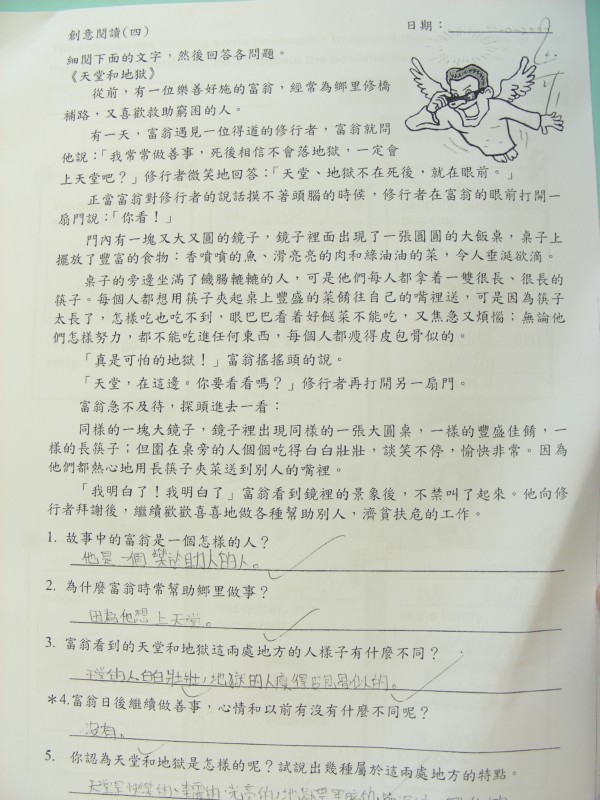 創意閱讀(四)
日期：
細閱下面的文字，然後回答各問題。
《天堂和地獄》
從前，有一位樂善好施的富翁，經常為鄉里修橋
補路，又喜歡救助窮困的人。
有一天，富翁遇見一位得道的修行者，富翁就問
他說：「我常常做善事，死後相信不會落地獄，一定會
上天堂吧？」修行者微笑地回答：「天堂、地獄不在死後，就在眼前。」
正當富翁對修行者的說話摸不著頭腦的時候，修行者在富翁的眼前打開一
扇門說：「你看！」
門內有一塊又大又圓的鏡子，鏡子裡面出現了一張圓圓的大飯桌，桌子上
擺放了豐富的食物：香噴噴的魚、滑亮亮的肉和綠油油的菜，令人垂涎欲滴。
桌子的旁邊坐滿了饑腸轆轆的人，可是他們每人都拿着一雙很長、很長的
筷子。每個人都想用筷子夾起桌上豐盛的菜餚往自己的嘴裡送，可是因為筷子
太長了，怎樣吃也吃不到，眼巴巴看着好餸菜不能吃，又焦急又煩惱；無論他
們怎樣努力，都不能吃進任何東西，每個人都瘦得皮包骨似的。
「真是可怕的地獄！」富翁搖搖頭的說。
「天堂，在這邊。你要看看嗎？」修行者再打開另一扇門。
富翁急不及待，探頭進去一看：
同樣的一塊大鏡子，鏡子裡出現同樣的一張大圓桌，一樣的豐盛佳餚，一
樣的長筷子；但圍在桌旁的人個個吃得白白壯壯，談笑不停，愉快非常。因為
他們都熱心地用長筷子夾菜送到別人的嘴裡。
「我明白了！我明白了」富翁看到鏡裡的景象後，不禁叫了起來。他向修
行者拜謝後，繼續歡歡喜喜地做各種幫助別人，濟貧扶危的工作。
1. 故事中的富翁是一個怎樣的人？
他是一個樂於助人的人。
2. 為什麼富翁時常幫助鄉里做事？
因為他想上天堂。
3. 富翁看到的天堂和地獄這兩處地方的人樣子有什麼不同？
天堂的人白白壯壯，地獄的人瘦得皮包骨似的。
*4.富翁日後繼續做善事，心情和以前有沒有什麼不同呢？
沒有。
5. 你認為天堂和地獄是怎樣的呢？試說出幾種屬於這兩處地方的特點。
天堂是快樂的、